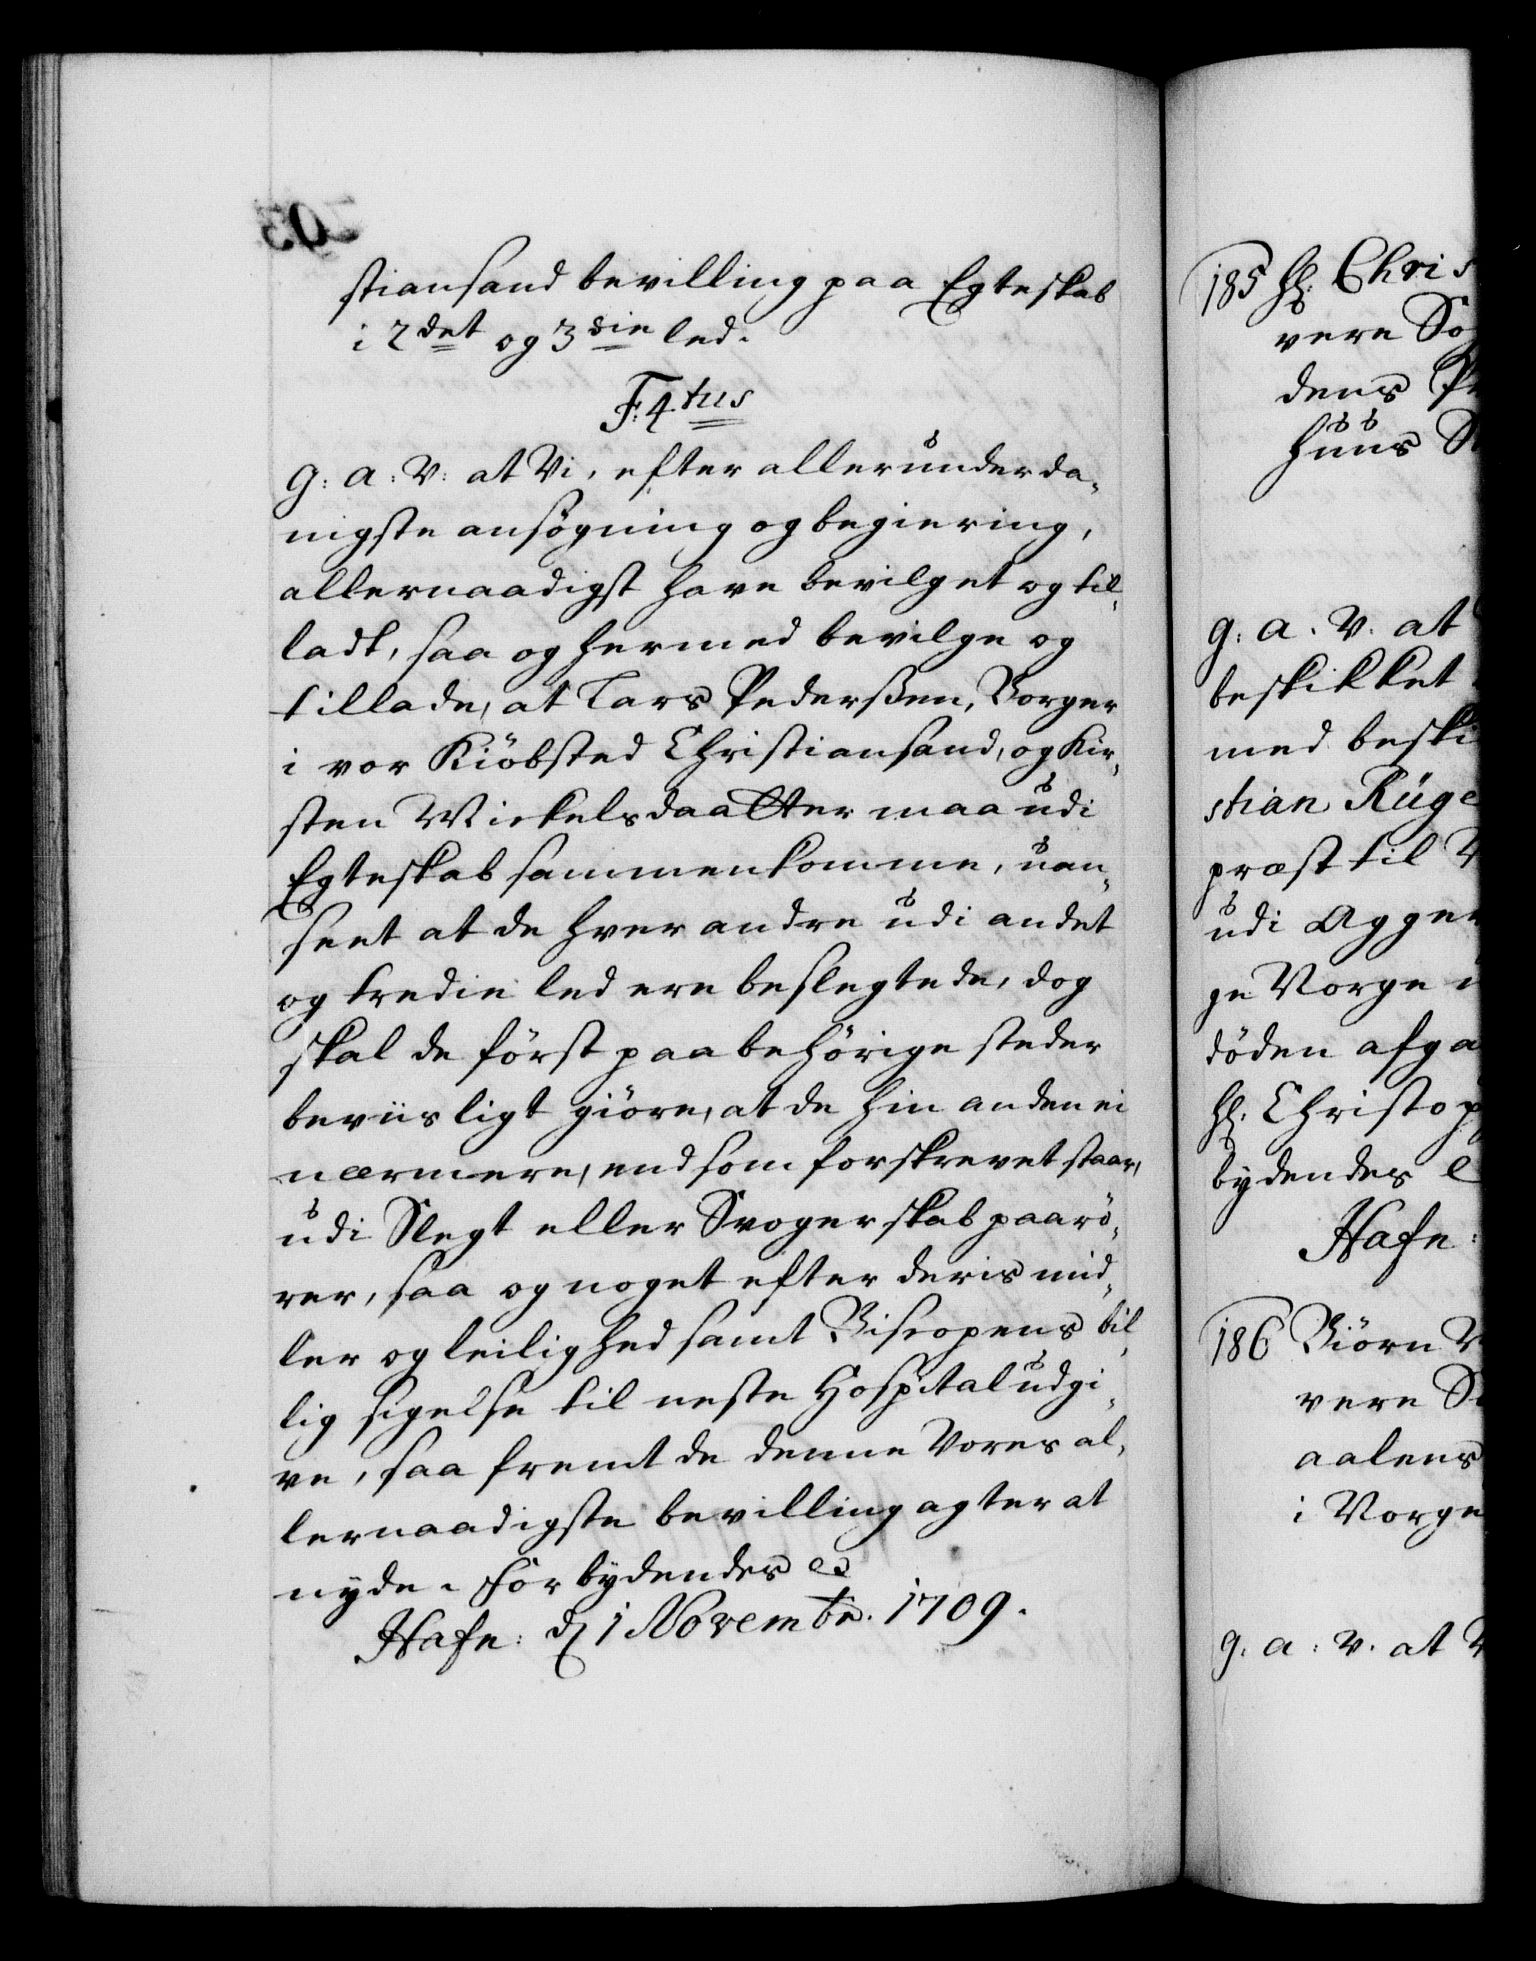 stiansand bevilling paa Egteskab
i 2det og 3die led.
F: 4tus
G: A: V: at Vi, efter allerunderda-
nigste ansøgning og begiering,
allernaadigst have bevilget og til-
ladt, saa og hermed bevilge og
tillade, at Lars Pederßen, Borger
i vor Kiöbsted Christiansand, og Kir-
sten Mickelsdaatter maa udi
Egteskab sammenkomme, uan-
seet at de hver andre udi andet
og tredie led ere beslegtede, dog
skal de först paa behörige steder
beviisligt giöre, at de hin anden ei
nærmere, end som forskrevet staar,
udi Slegt eller Svogerskab paarö-
rer, saa og noget efter deris mid-
ler og leilighed samt Biscopens bil-
lig sigelse til neste Hospital udgi-
ve, saa fremt de denne Vores al-
lernaadigste bevilling agter at
nyde. Forbydendes &
Hafn: d 1 Novembr. 1709.
185 Hr: Chris
vere So
dens Pr
huus St
g: a. V. at
beskikket
med beski
stian Rüge
præst til V
udi Agger
ge Norge u
döden afga
Hr: Christop
bydendes &
Hafn:
186 Biörn
vere S
aalens
i Norge
g. a: v. at V